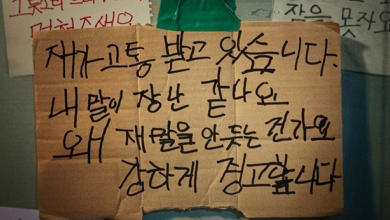 그 멈춰주세요
잠을 못자요
재가 고통 받고 있습니다.
내 말이 장난 같나요
왜 재 말을 안 듣는 건가요
강하게 경고합니다